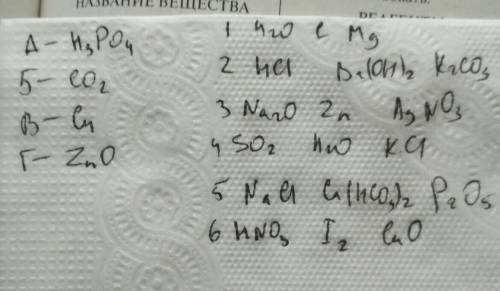 НАЗВАНИЕ ВЕЩЕСТВА
РЕАГЕНТЫ
А – H3PO4
Б – CO2
В – Cu
Г – ZnO
1 H2O C Mg
2 HCl Ba(OH)2 K2CO3
3 Na2O Zn AgNO3
4 SO2 H2O KCl
5 NaCl Ca(HCO3)2 P2O5
6 HNO3 I2 CuO